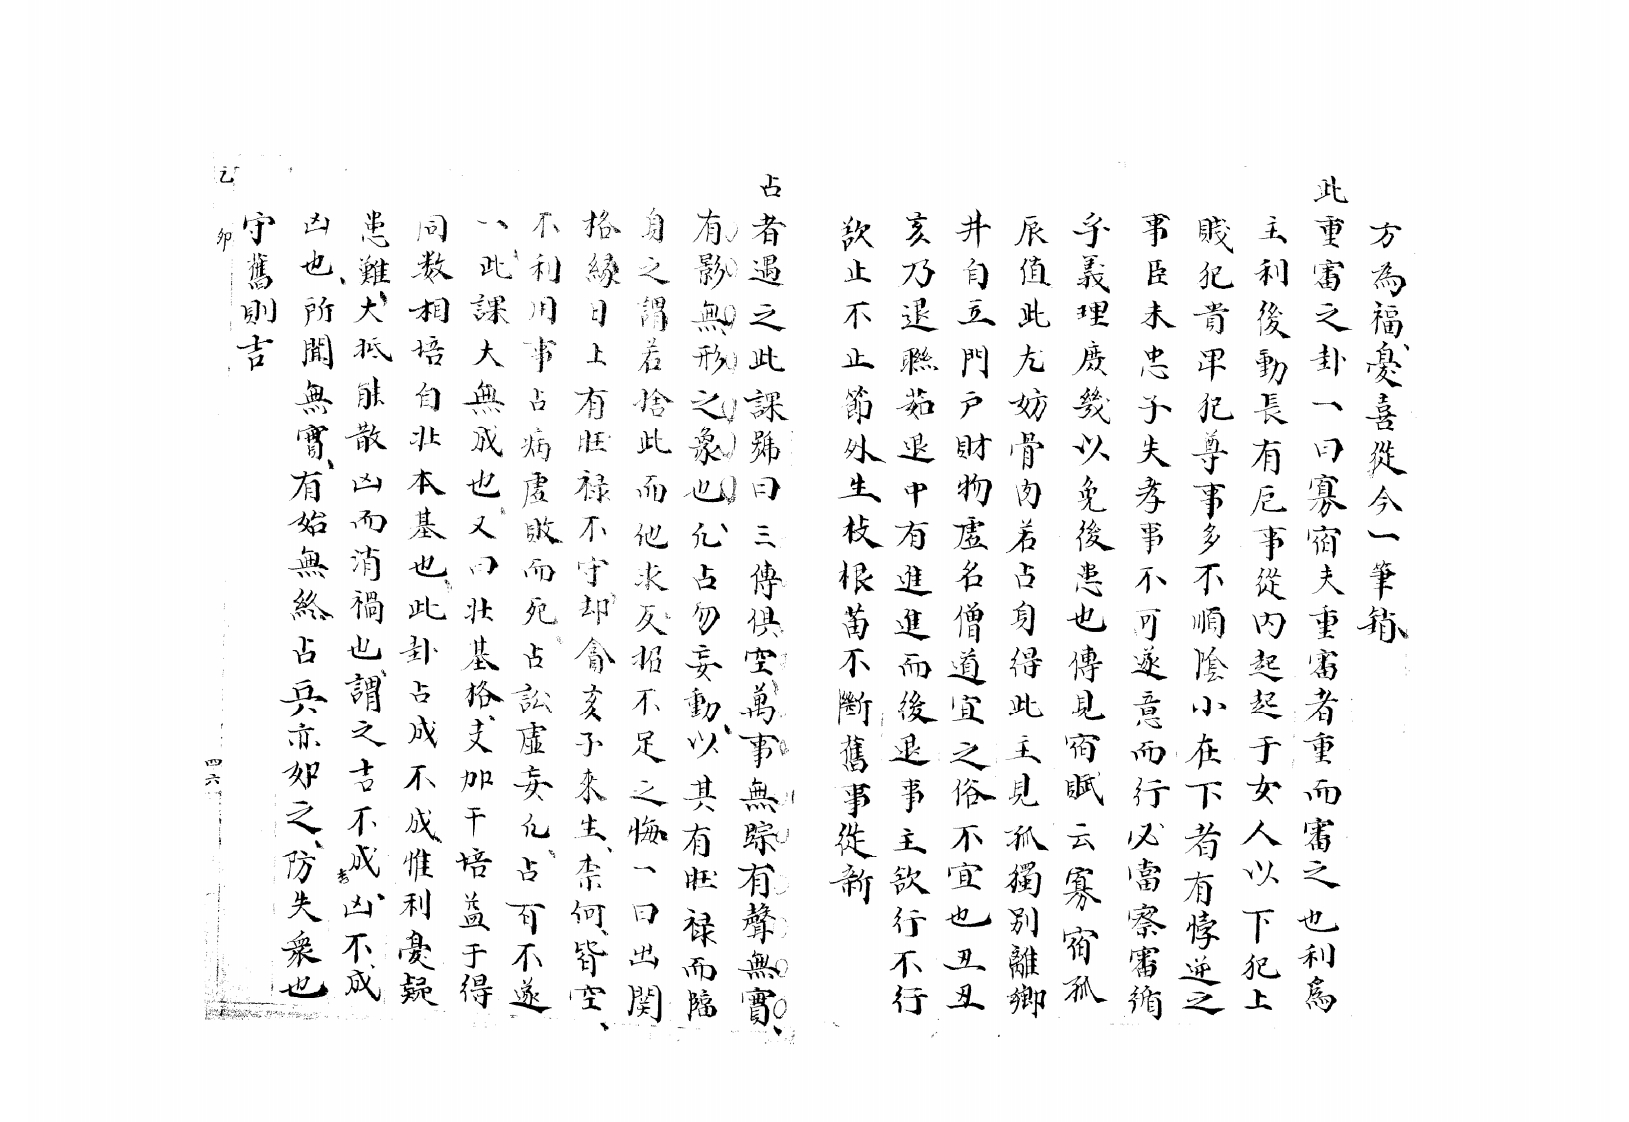 方為福憂喜從今一筆銷
此重審之卦一曰寡宿夫重審者重而審之也利為
主利後動長有厄事從內起起于女人以下犯上
賤犯貴卑犯尊事多不順陰小在下者有悖逆之
事臣未忠子失孝事不可遂意而行必當察審循
乎義理庶幾以免後患也傳見宿賦云寡宿孤
辰值此尤妨骨肉若占身得此主見孤獨別離鄉
井自立門戶財物虛名僧道宜之俗不宜也丑丑
亥乃退聯茹退中有進進而後退事主欲行不行
欲止不止節外生枝根苗不斷舊事從新
占者遇之此課號曰三傳俱空萬事無踪有聲無實
有影無形之象也凡占勿妄動以其有旺祿而臨
身之謂若捨此而他求反招不足之悔一曰出関
格緣日上有旺祿不守却貪亥子來生柰何皆空
不利用事占病虛敗而死占訟虛妄凡占百不遂
一此課大無成也又曰壯基格支加干培益于得
同数相培自壯本基也此卦占成不成惟利憂疑
患難大抵能散凶而消禍也謂之吉不成凶不成
凶也所聞無實有始無終占兵亦如之防失衆也
守舊則吉
乙卯
四六